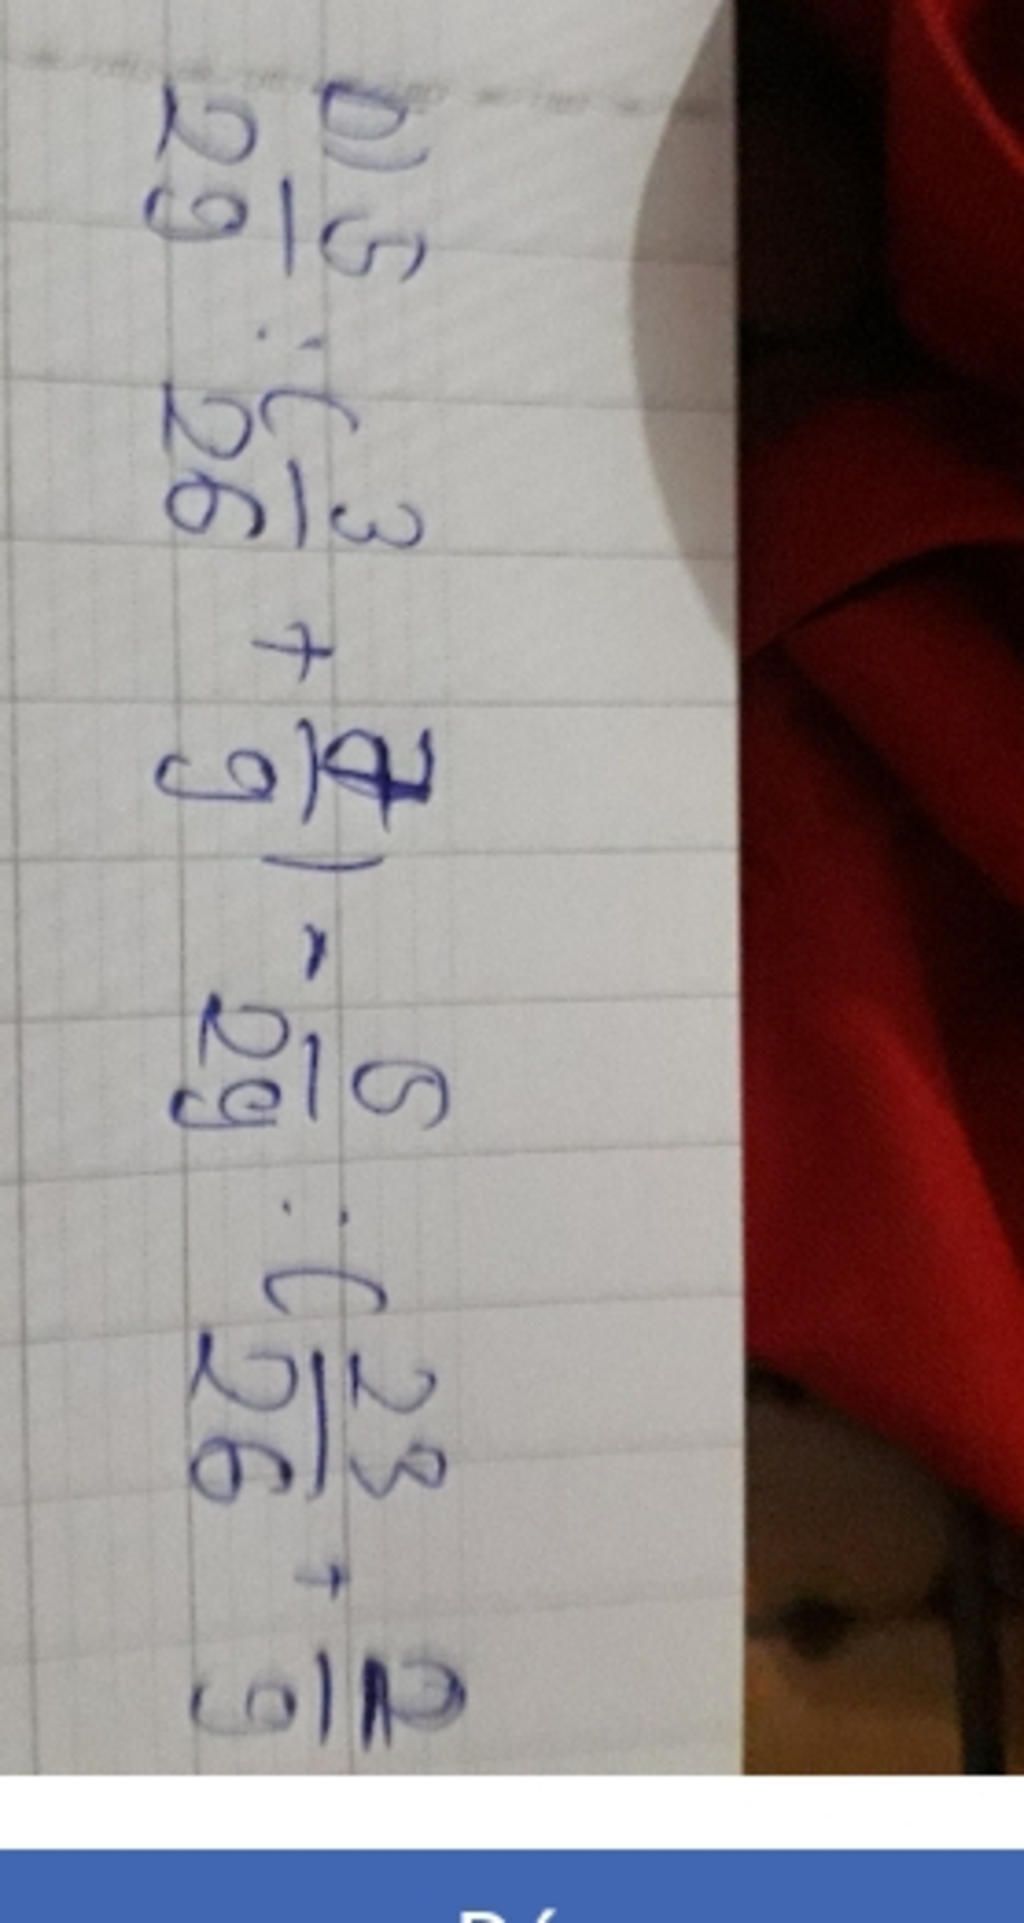 D) 5/29 : (3/26 + 7/9) - 5/29 : (23/26 + 2/9